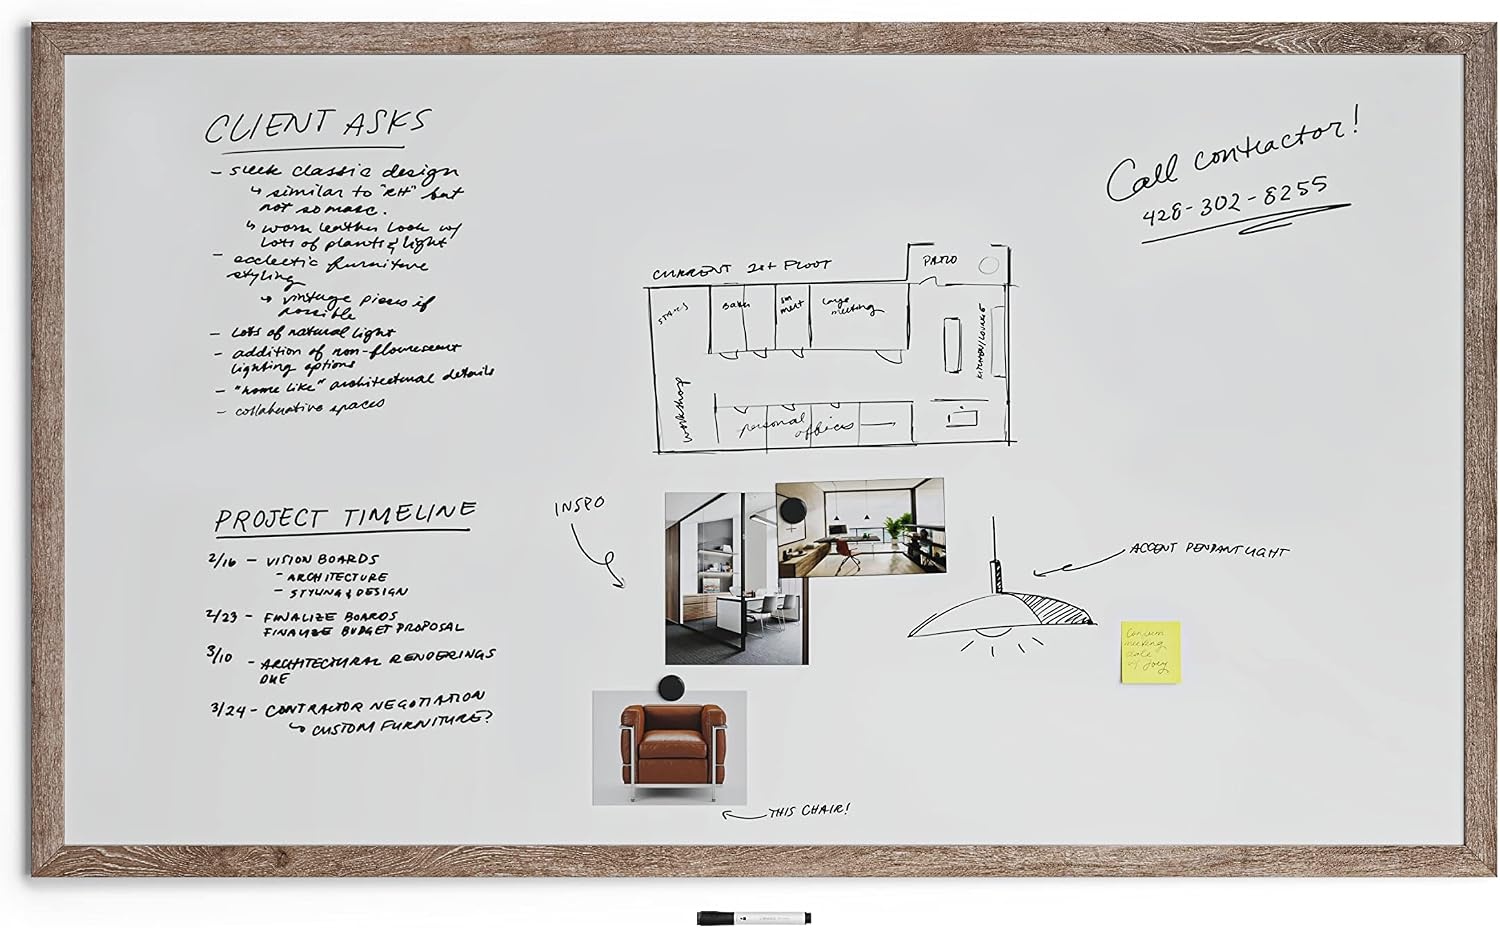 CLIENT ASKS
- sleek classic design
↳ similar to "RH" but
not so masc.
↳ worn leather look w/
lots of plants & light
- ecclectic furniture
styling
→ vintage pieces if
possible
- lots of natural light
- addition of non-flourescent
lighting options
- "home like" architectural details
- collaborative spaces
PROJECT TIMELINE
2/16 - VISION BOARDS
- ARCHITECTURE
- STYLING & DESIGN
2/23 - FINALIZE BOARDS
FINALIZE BUDGET PROPOSAL
3/10 - ARCHITECTURAL RENDERINGS
DUE
3/24 - CONTRACTOR NEGOTIATION
↳ CUSTOM FURNITURE?
Call contractor!
428-302-8255
CURRENT FLOOR
PATIO
STAIRS
sm
meet
large
meeting
KITCHEN/LOUNGE
workshop
personal
offices
INSPO
ACCENT PENDANT LIGHT
Confirm
meeting
date
w/ Joey
THIS CHAIR!